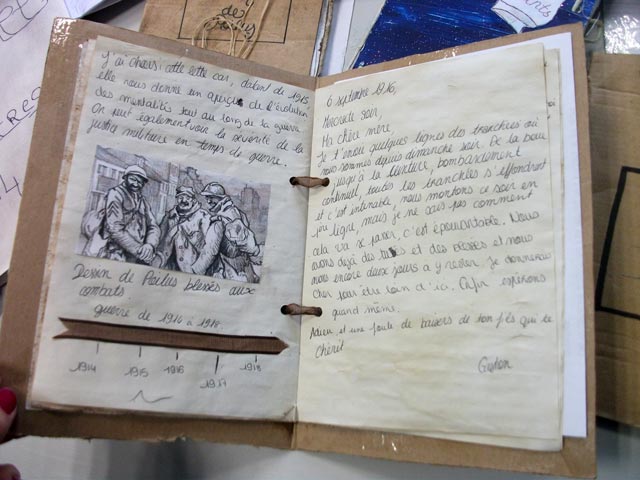 J'ai choisi cette lettre car, datant de 1915
elle nous donne un aperçu de l'évolution
des mentalités tout au long de la guerre.
On peut également voir la sévérité de la
justice militaire en temps de guerre.
Dessin de Poilus blessés aux
combats.
guerre de 1914 à 1918
1914 1915 1916 1917 1918
6 septembre 1916,
Mercredi soir,
Ma chère mère,
Je t'envoie quelques lignes des tranchées où
nous sommes depuis dimanche soir. De la boue
jusqu'à la ceinture, bombardement
continuel, toutes les tranchées s'effondrent
et c'est intenable, nous montons ce soir en
1ère ligne, mais je ne sais pas comment
cela va se passer, c'est épouvantable. Nous
avons déjà des tués et des blessés et nous
avons encore deux jours a y rester. Je donnerais
cher pour être loin d'ici. Enfin espérons
quand même.
Adieu et une foule de baisers de ton fils qui te
chérit
Gaston